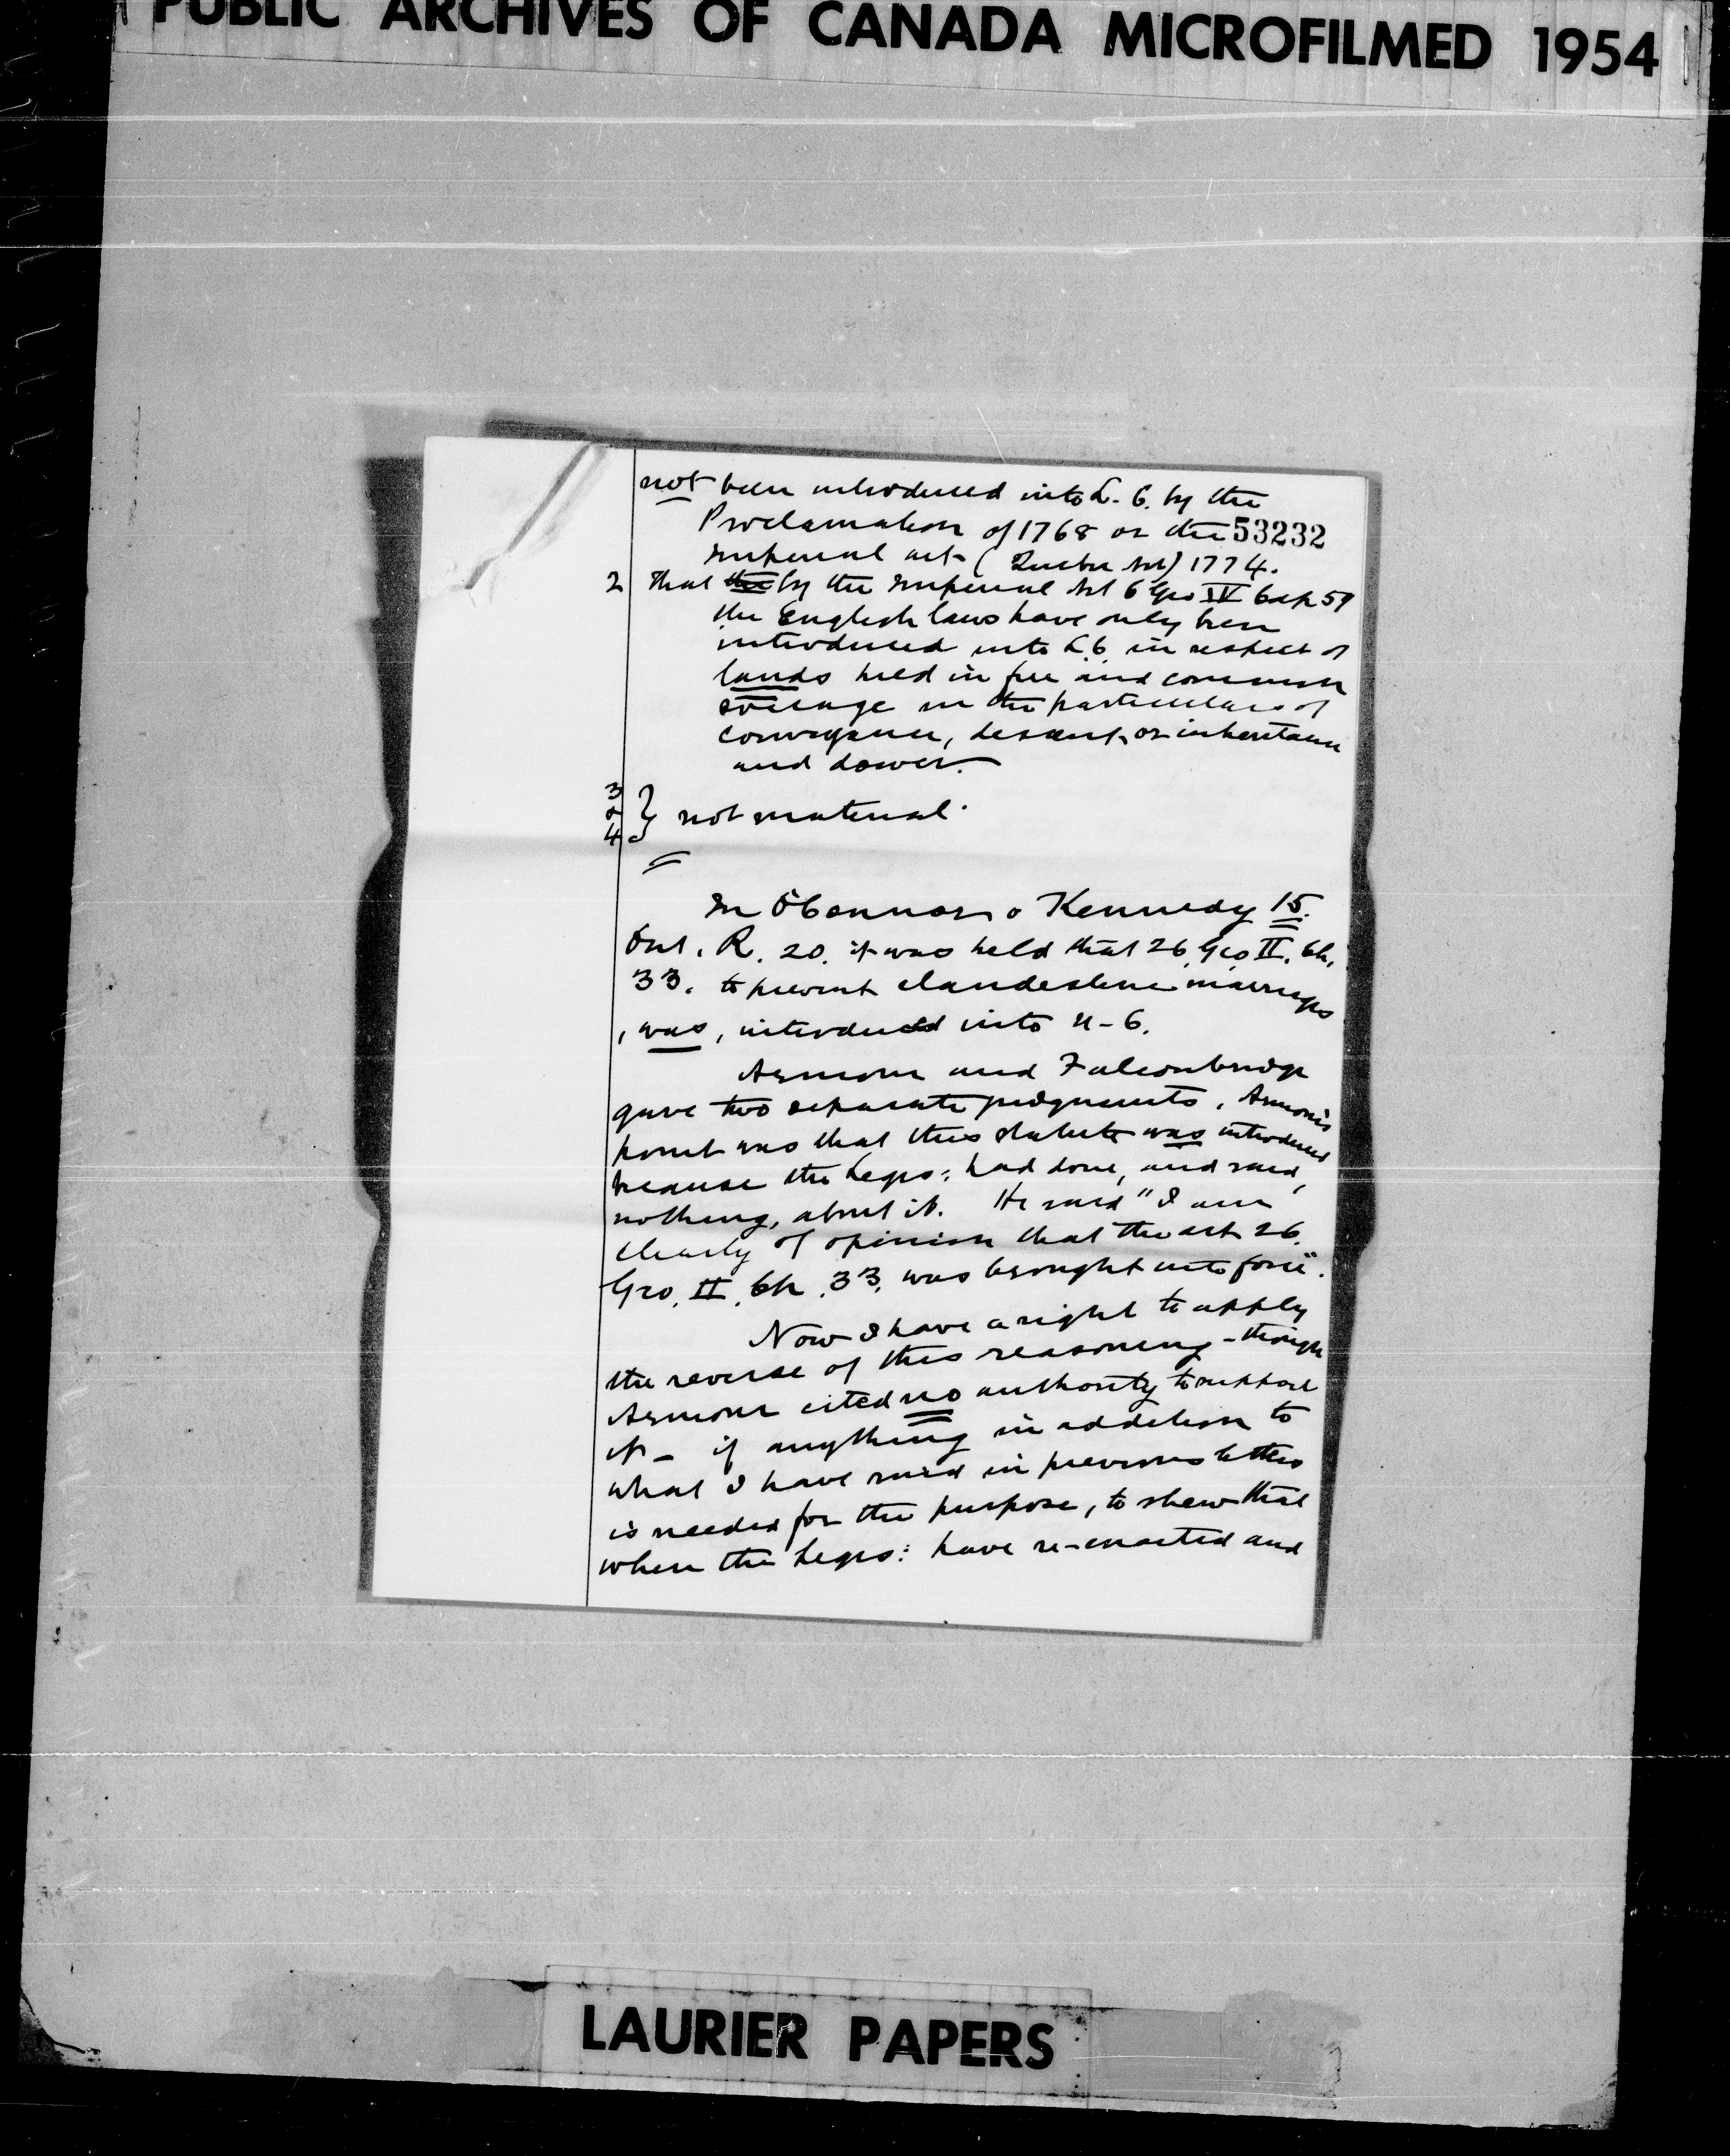 PUBLIC ARCHIVES OF CANADA MICROFILMED 1954
not been introduced into L. C. by the
Proclamation of 1768 or the 53232
Imperial act (Quebec Act) 1774.
2 That the by the Imperial Act 6 Geo IV Cap 59
the English laws have only been
introduced into L.C. in respect of
lands held in free and common
soccage in the particulars of
conveyance, descent, or inheritance
and dower.
3
&
4 } not material.
In O'Connor v Kennedy 15.
Ont. R. 20. it was held that 26. Geo II. Ch.
33. to prevent clandestine marriages
, was, introduced into U-C.
Armour and Falconbridge
gave two separate judgments. Armour's
point was that this statute was introduced
because the Legis: had done, and said,
nothing, about it. He said "I am
clearly of opinion that the act 26.
Geo. II. Ch. 33. was brought into force".
Now I have a right to apply
the reverse of this reasoning - though
Armour cited no authority to support
it - if anything in addition to
what I have said in previous letters
is needed for the purpose, to shew that
when the Legis: have re-enacted and
LAURIER PAPERS